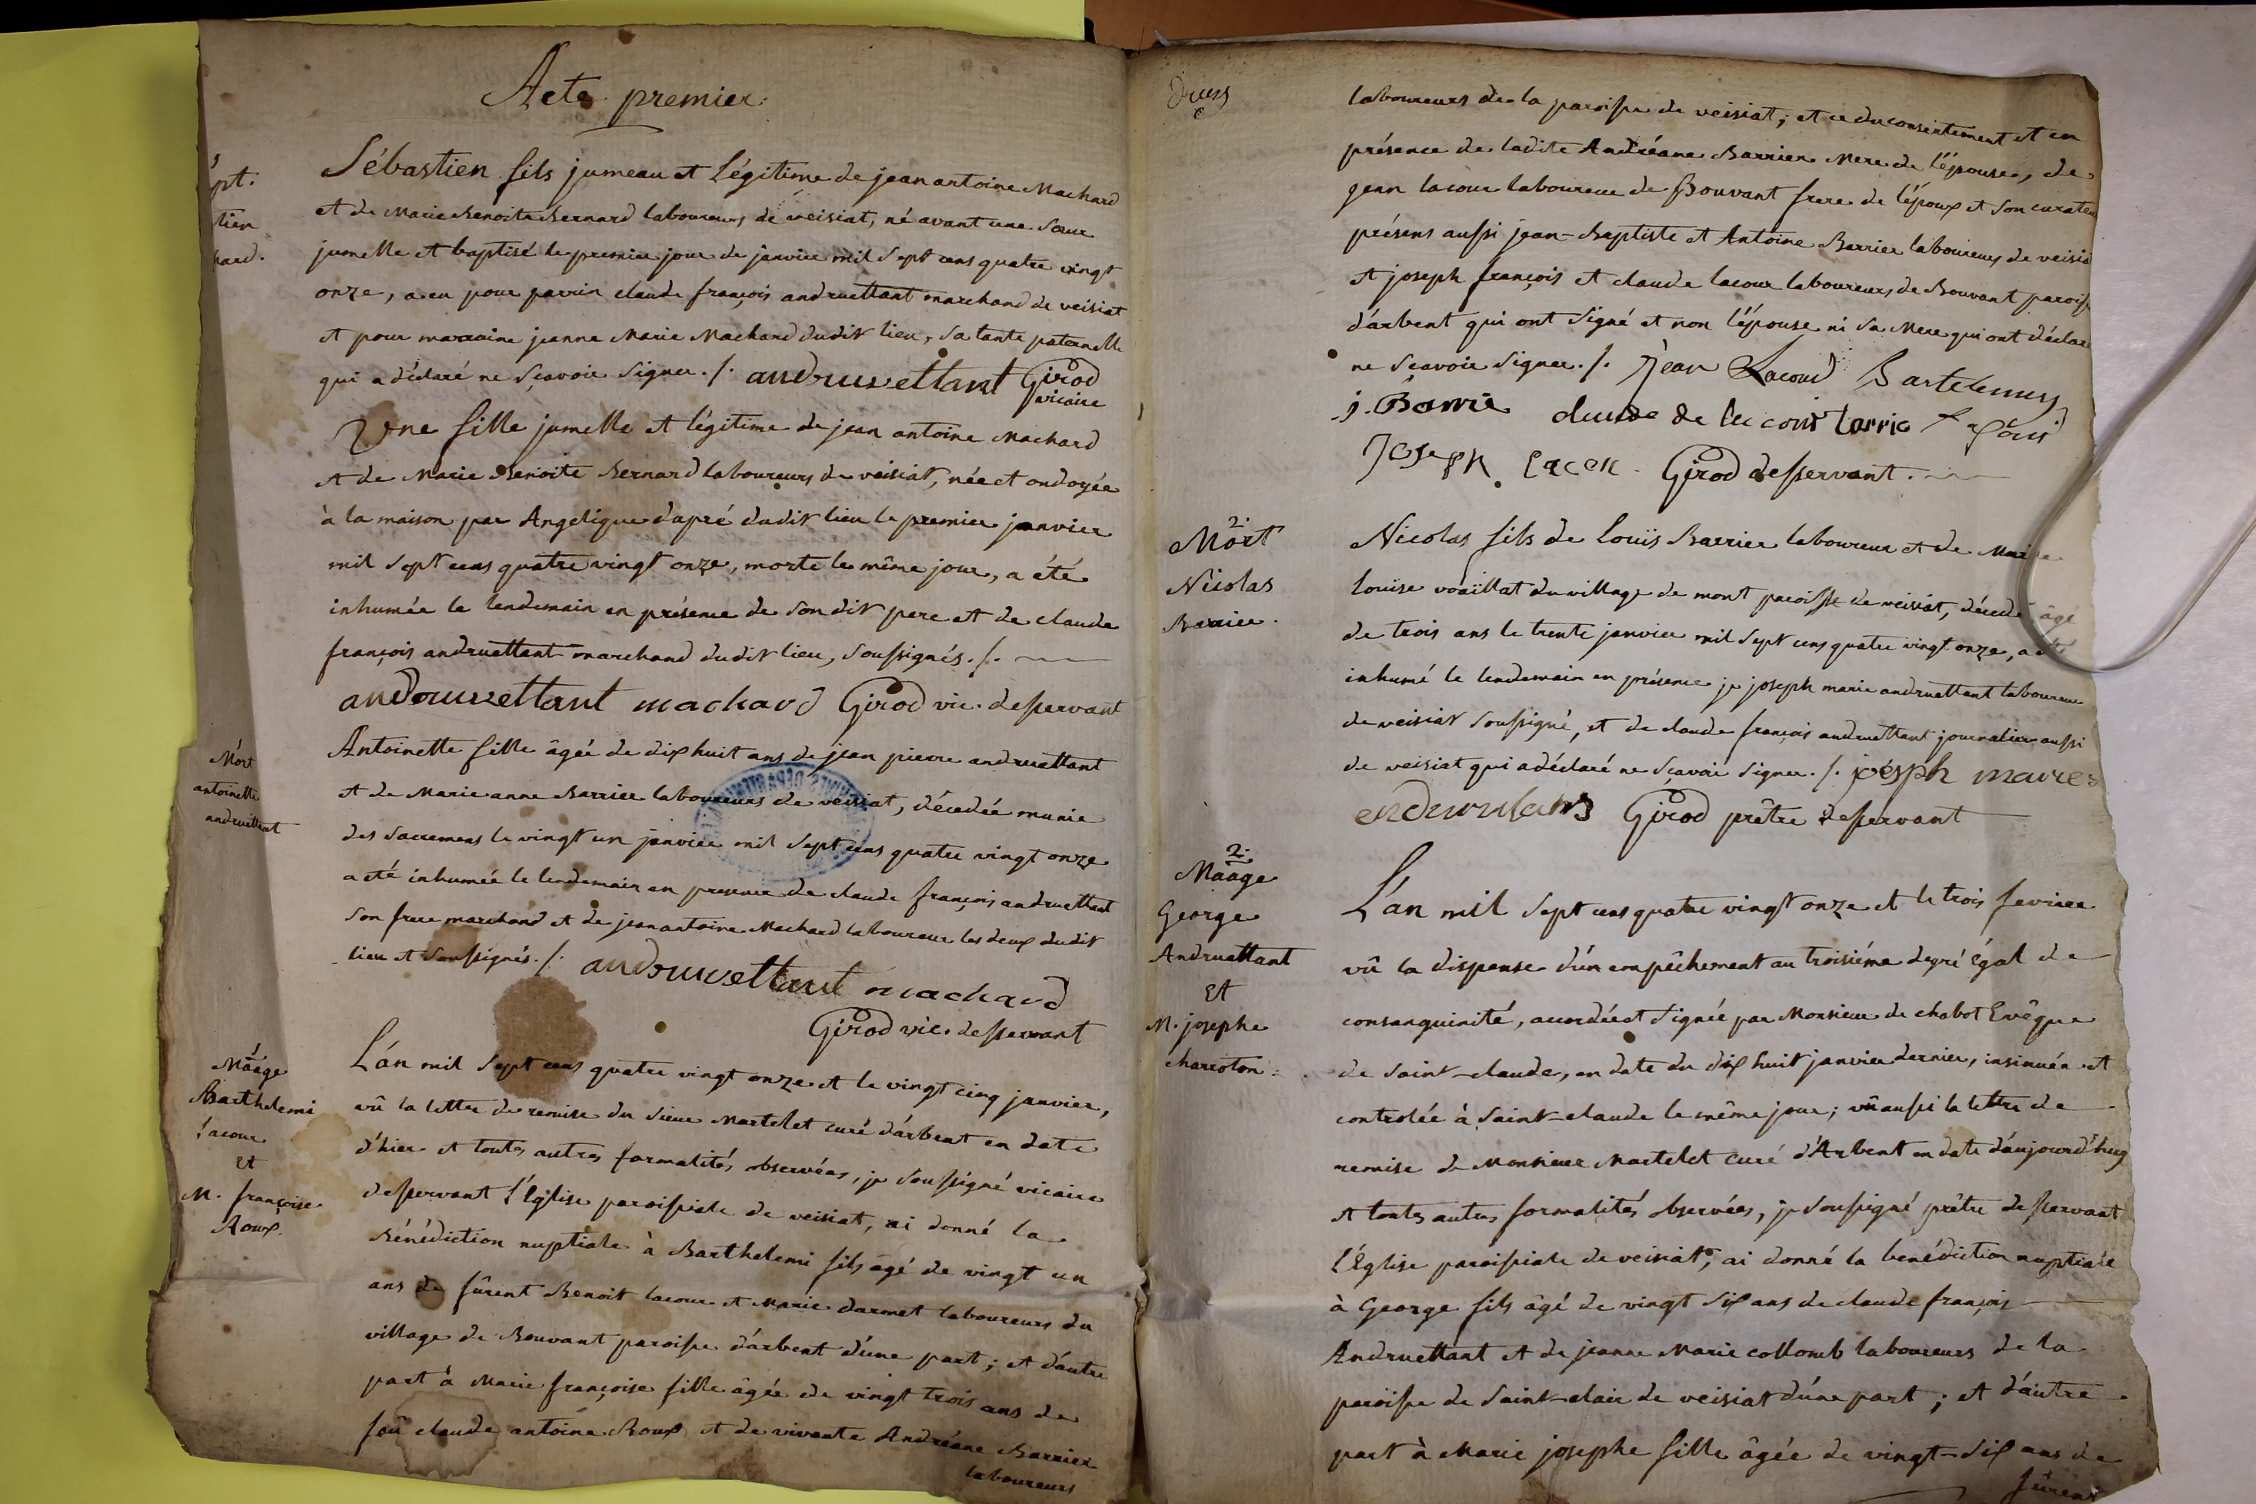 Acte premier.
pt.
tien
hard.
Sébastien fils jumeau et Légitime de jean antoine Machard
et de Marie Benoite Bernard laboureurs de veisiat, né avant une sœur
jumelle et baptisé le premier jour de janvier mil sept cens quatre vingt
onze, a eu pour parrin claude françois andruettant marchand de veisiat
et pour marraine jeanne Marie Machard dudit lieu, sa tante paternelle
qui a déclaré ne sçavoir signer ./. andruvettant Girod
vicaire
Une fille jumelle et légitime de jean antoine Machard
et de Marie Benoite Bernard laboureurs de veisiat, née et ondoyée
à la maison par Angelique dupré dudit lieu le premier janvier
mil sept cens quatre vingt onze, morte le même jour, a été
inhumée le lendemain en présence de son dit pere et de claude
françois andruettant marchand dudit lieu, soussignés ./.
andruvettant machard Girod vic. desservant
Mort
antoinette
andruettant
Antoinette fille âgée de dix huit ans de jean pierre andruettant
et de Marie anne Barrier laboureurs de veisiat, décedée munie
des sacremens le vingt un janvier mil sept cens quatre vingt onze
a eté inhumée le lendemain en presence de claude françois andruettant
son frere marchand et de jean antoine Machard laboureur les deux dudit
lieu et soussignés ./. andruvettant machard
Girod vic. desservant
1
Maage
Barthelemi
Lacour
Et
M. françoise
Roux.
L'án mil sept cens quatre vingt onze et le vingt cinq janvier,
vû la lettre de remise du sieur Martelet curé d'árbent en date
d'hier et toutes autres formalités observées, je soussigné vicaire
desservant l'Eglise paroissiale de veisiat, ai donné la
Bénédiction nuptiale à Barthelemi fils âgé de vingt un
ans de fûrent Benoit lacour et Marie darmet laboureurs du
village de Bouvant paroisse d'árbent d'úne part; et d'áutre
part à Marie françoise fille âgée de vingt trois ans de
fû claude antoine Roux et de vivante Andréane Barrier
laboureurs
laboureurs de la paroisse de veisiat; et ce du consentement et en
présence de ladite Andréane Barrier Mere de l'épouse, de
jean lacour laboureur de Bouvant frere de l'époux et son curateur
présens aussi jean-Baptiste et Antoine Barrier laboureurs de veisia
et joseph françois et claude lacour laboureurs de Bouvant parois
d'árbent qui ont signé et non l'épouse ni sa Mere qui ont déclaré
ne sçavoir signer ./. Jean Lacour Bartelemy
j. Barrie claude de la cour
Joseph Lacou Girod desservant.
2.
Mort
Nicolas
Barrier.
Nicolas fils de louïs Barrier laboureur et de Marie
louïse voaillat du village de mont paroisse de veisiat, décedé âgé
de trois ans le trente janvier mil sept cens quatre vingt onze, a été
inhumé le lendemain en présence je joseph marie andruettant laboureur
de veisiat soussigné, et de claude françois andruettant journalier aussi
de veisiat qui a déclaré ne sçavoir signer ./. joseph marie
Girod prêtre desservant
2.
Maage
George
Andruettant
Et
M. josephe
charroton.
L'án mil sept cens quatre vingt onze et le trois fevrier
vû la dispense d'ún empêchement au troisiéme degré égal de
consanguinité, accordée et signée par Monsieur de chabot Evêque
de saint-claude, en date du dix huit janvier dernier, insinuée et
controlée à saint-claude le même jour; vû aussi la lettre de
remise de Monsieur Martelet curé d'Arbent en date d'áujourd'huy
et toutes autres formalités observées, je soussigné prêtre desservant
l'Église paroissiale de veisiat, ai donné la benédiction nuptiale
à George fils âgé de vingt six ans de claude françois
Andruettant et de jeanne Marie collomb laboureurs de la
paroisse de saint-clair de veisiat d'úne part; et d'áutre
part à Marie josephe fille âgée de vingt-six ans de
fûrent